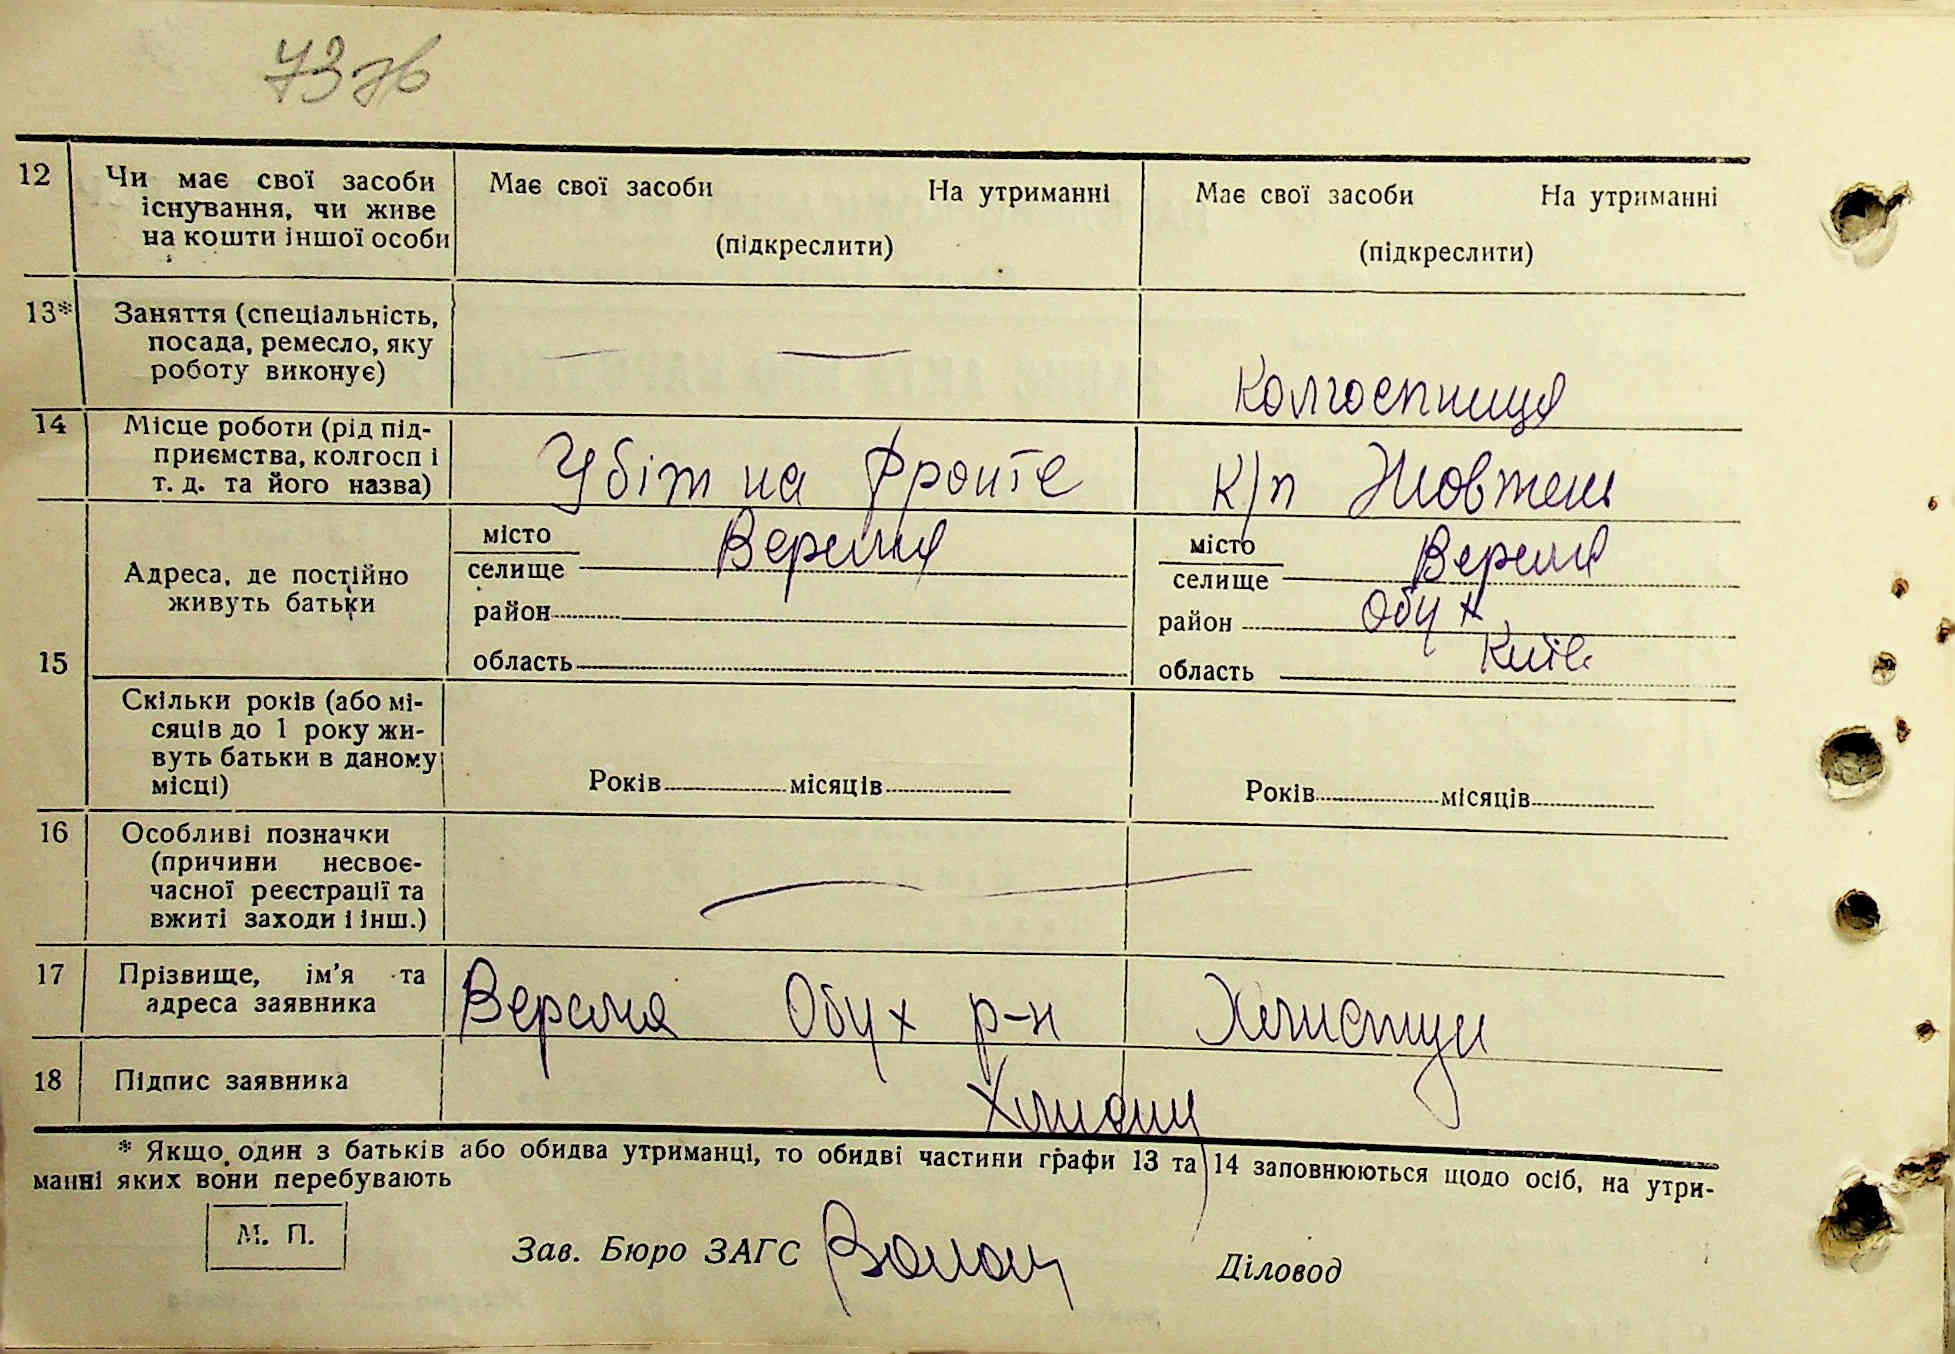 73 зв
12 Чи має свої засоби існування, чи живе на кошти іншої особи
Має свої засоби На утриманні
(підкреслити)
Має свої засоби На утриманні
(підкреслити)
13* Заняття (спеціальність, посада, ремесло, яку роботу виконує)
— —
Колгоспниця
14 Місце роботи (рід підприємства, колгосп і т. д. та його назва)
Убіт на фронте
к/п Жовтень
15 Адреса, де постійно живуть батьки
місто
селище Веремя
район
область
місто
селище Веремя
район Обух
область Київ.
Скільки років (або місяців до 1 року живуть батьки в даному місці)
Років місяців
Років місяців
16 Особливі позначки (причини несвоєчасної реєстрації та вжиті заходи і інш.)
17 Прізвище, ім'я та адреса заявника
Веремя Обух р-н
18 Підпис заявника
* Якщо один з батьків або обидва утриманці, то обидві частини графи 13 та 14 заповнюються щодо осіб, на утри-
манні яких вони перебувають
М. П.
Зав. Бюро ЗАГС
Діловод